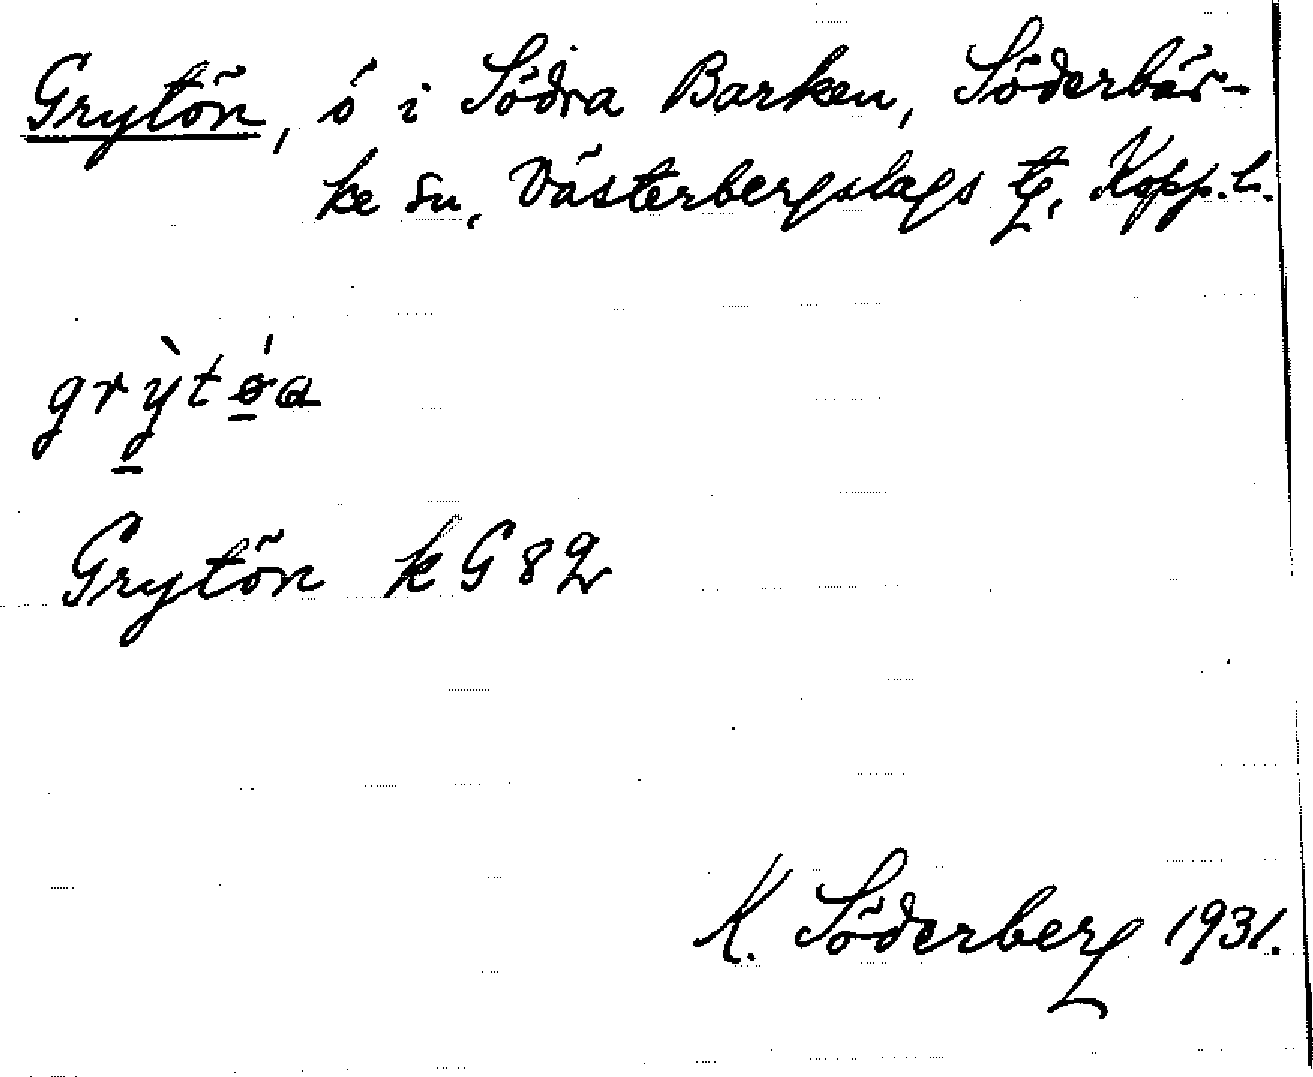 Grytön, ö i Södra Barken, Söderbär-
ke sn, Västerbergslags tg, Kopp. l.
grỳtǿ̱a
Grytön kG 82
K. Söderberg 1931.